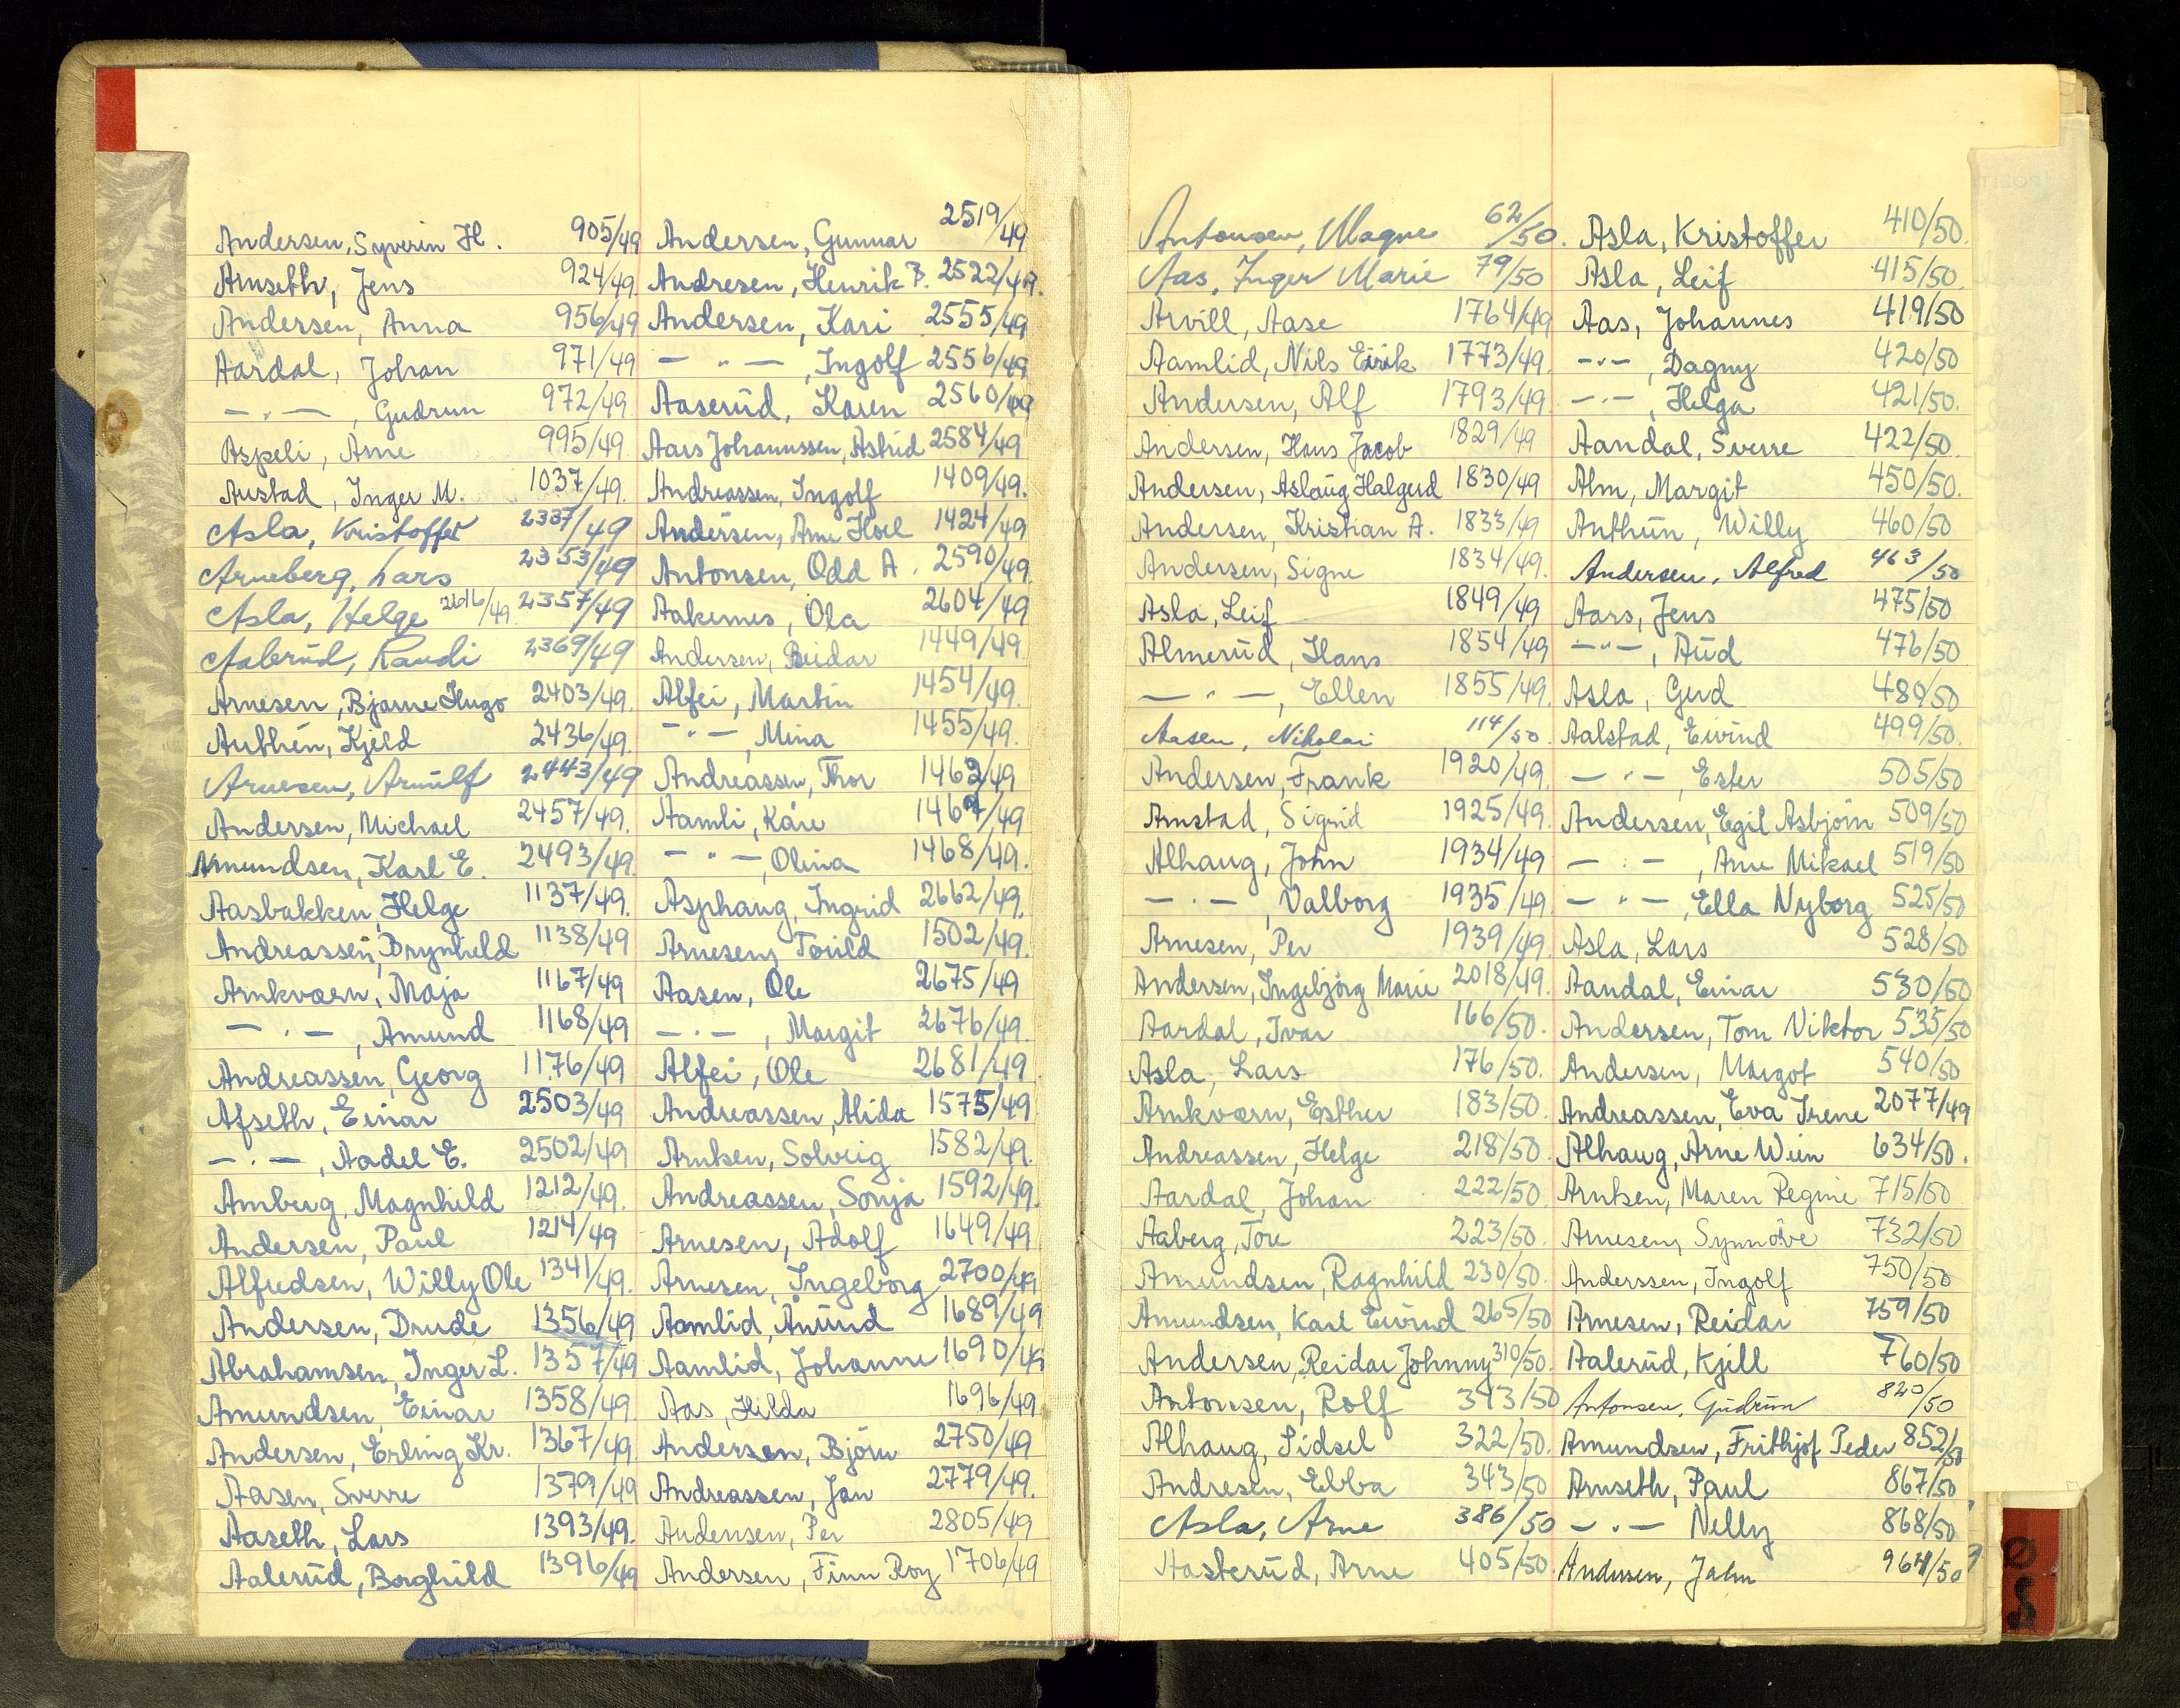 Andersen, Syverin H. 905/49
Arnseth, Jens 924/49.
Andersen, Anna 956/49
Aardal, Johan 971/49
— " — , Gudrun 972/49
Aspeli, Arne 995/49
Austad, Inger M. 1037/49.
Asla, Kristoffer 2337/49
Arneberg, Lars 2353/49
Asla, Helge 2616/49 2357/49
Aalerud, Randi 2369/49
Arnesen, Bjarne Hugo 2403/49.
Authén, Kjeld 2436/49.
Arnesen, Arnulf 2443/49
Andersen, Michael 2457/49.
Amundsen, Karl E. 2493/49.
Aasbakken, Helge 1137/49.
Andreassen, Brynhild 1138/49
Arnkværn, Maja 1167/49
— " — , Amund 1168/49
Andreassen, Georg 1176/49
Afseth, Einar 2503/49
— " — , Aadel E. 2502/49
Amberg, Magnhild 1212/49.
Andersen, Paul 1214/49
Alfredsen, Willy Ole 1341/49.
Andersen, Drude 1356/49
Abrahamsen, Inger L. 1357/49
Amundsen, Einar 1358/49.
Andersen, Erling Kr. 1367/49.
Aasen, Sverre 1379/49
Aaseth, Lars 1393/49.
Aalerud, Borghild 1396/49
Andersen, Gunnar 2519/49
Andresen, Henrik B. 2522/49.
Andersen, Kari 2555/49
— " — , Ingolf 2556/49
Aaserud, Karen 2560/49
Aars Johannssen, Astrid 2584/49
Andreassen, Ingolf 1409/49.
Andersen, Arne Hoel 1424/49
Antonsen, Odd A. 2590/49
Aakernes, Ola 2604/49
Andersen, Reidar 1449/49
Alfei, Martin 1454/49.
— " — , Mina 1455/49.
Andreassen, Thor 1462/49
Aamli, Kåre 1467/49
— " — , Olina 1468/49.
Asphaug, Ingrid 2662/49.
Arnesen, Torild 1502/49.
Aasen, Ole 2675/49
— " — , Margit 2676/49.
Alfei, Ole 2681/49
Andreassen, Alida 1575/49
Arntsen, Solveig 1582/49.
Andreassen, Sonja 1592/49.
Arnesen, Adolf 1649/49
Arnesen, Ingeborg 2700/49
Aamlid, Ånund 1689/49
Aamlid, Johanne 1690/49
Aas, Hilda 1696/49
Andersen, Björn 2750/49
Andreassen, Jan 2779/49.
Andersen, Per 2805/49
Andersen, Finn Roy 1706/49
Antonsen, Magne 62/50.
Aas, Inger Marie 79/50
Arvill, Aase 1764/49
Aamlid, Nils Eirik 1773/49.
Andersen, Alf 1793/49
Andersen, Hans Jacob 1829/49
Andersen, Aslaug Halgerd 1830/49
Andersen, Kristian A. 1833/49
Andersen, Signe 1834/49.
Asla, Leif 1849/49
Almerud, Hans 1854/49
— " — , Ellen 1855/49.
Aasen, Nikolai 114/50.
Andersen, Frank 1920/49.
Arnstad, Sigrid 1925/49.
Alhaug, John 1934/49
— " — , Valborg 1935/49
Arnesen, Per 1939/49
Andersen, Ingebjörg Marie 2018/49.
Aardal, Ivar 166/50.
Asla, Lars 176/50.
Arnkværn, Esther 183/50.
Andreassen, Helge 218/50
Aardal, Johan 222/50.
Aaberg, Tore 223/50.
Amundsen, Ragnhild 230/50.
Amundsen, Karl Eivind 265/50
Andersen, Reidar Johnny 310/50.
Antonsen, Rolf 313/50
Alhaug, Sidsel 322/50.
Andresen, Ebba 343/50
Asla, Arne 386/50
Hasterud, Arne 405/50
Asla, Kristoffer 410/50.
Asla, Leif 415/50.
Aas, Johannes 419/50
— " — , Dagny 420/50
— " — , Helga 421/50.
Aandal, Sverre 422/50.
Alm, Margit 450/50.
Anthun, Willy 460/50
Andersen, Alfred 463/50
Aars, Jens 475/50
— " — , Aud 476/50
Asla, Gerd 480/50
Aalstad, Eivind 499/50.
— " — , Ester 505/50
Andersen, Egil Asbjörn 509/50
— " — , Arne Mikael 519/50
— " — , Ella Nyborg 525/50
Asla, Lars 528/50
Aandal, Einar 530/50
Andersen, Tom Viktor 535/50
Andersen, Margot 540/50
Andreassen, Eva Irene 2077/49
Alhaug, Arne Wien 634/50.
Arntsen, Maren Regine 715/50
Arnesen, Synnöve 732/50
Anderssen, Ingolf 750/50
Arnesen, Reidar 759/50
Aalerud, Kjell 760/50
Antonsen, Gudrun 820/50
Amundsen, Frithjof Peder 852/50
Arnseth, Paul 867/50
— " — Nelly 868/50
Andersen, Jahn 964/50